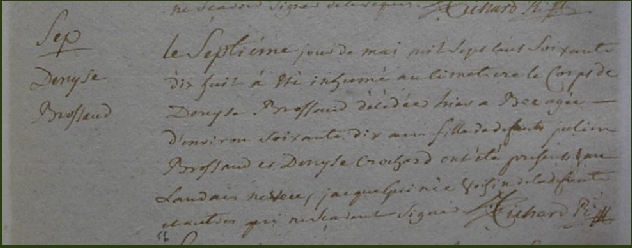 ne scavoir signer de ce requis Richard P.r
Sep
Denyse
Brossaud
le Septiéme jour de mai mil Sept Cent Soixante
dix huit à été inhumé au cimetiere le Corps de
Denyse Brossaud décédée hier a agée
d'environ Soixante dix ans fille de defunts
Brossaud et Denyse Crochard ont été presents
Landais neveu, jacque voisin de la defunte
et autres qui ne scavent Signer Richard P.r